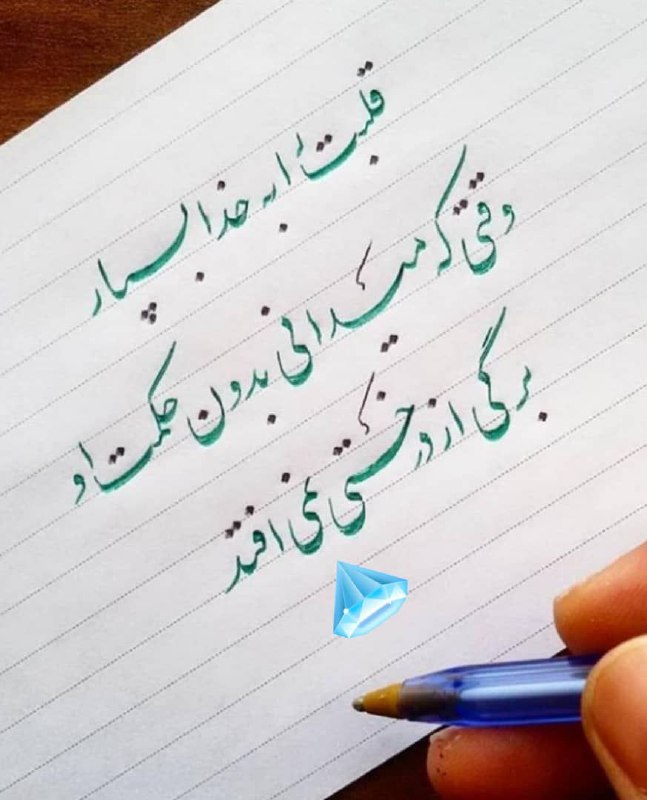 قلبت را به خدا بسپار
وقتی که میدانی بدون حکمت او
برگی از درختی نمی افتد